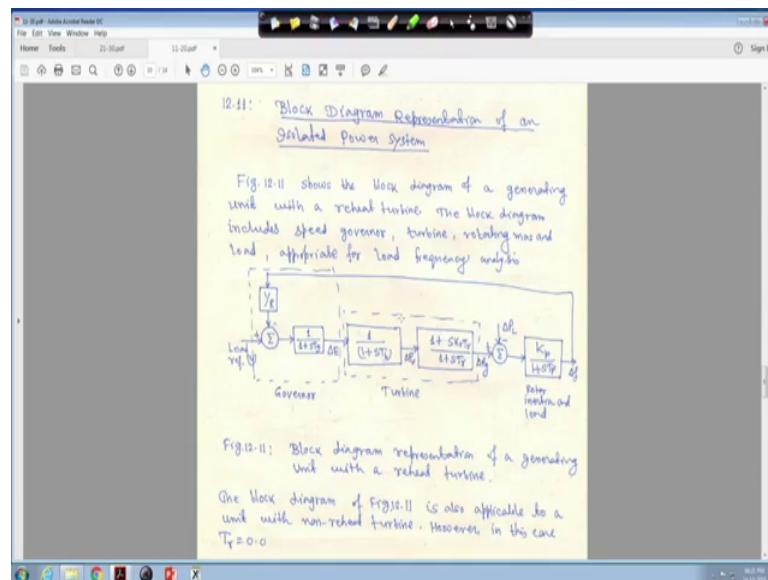 11-20.pdf - Adobe Acrobat Reader DC
File Edit View Window Help
Home Tools 21-30.pdf 11-20.pdf × Sign
12.11: Block Diagram Representation of an
Isolated Power System
Fig. 12.11 shows the block diagram of a generating
unit with a reheat turbine. The block diagram
includes speed governor, turbine, rotating mass and
load, appropriate for load frequency analysis
1/R
ΔPL
Load
ref.
Σ
1/(1+STg)
ΔE
1/(1+STt)
(1+SKrTr)/(1+STr)
ΔPg
Σ
Kp/(1+STp)
Δf
Governor
Turbine
Rotor
inertia and
load
Fig.12.11: Block diagram representation of a generating
unit with a reheat turbine.
The block diagram of Fig.12.11 is also applicable to a
unit with non-reheat turbine. However, in this case
Tr = 0.0